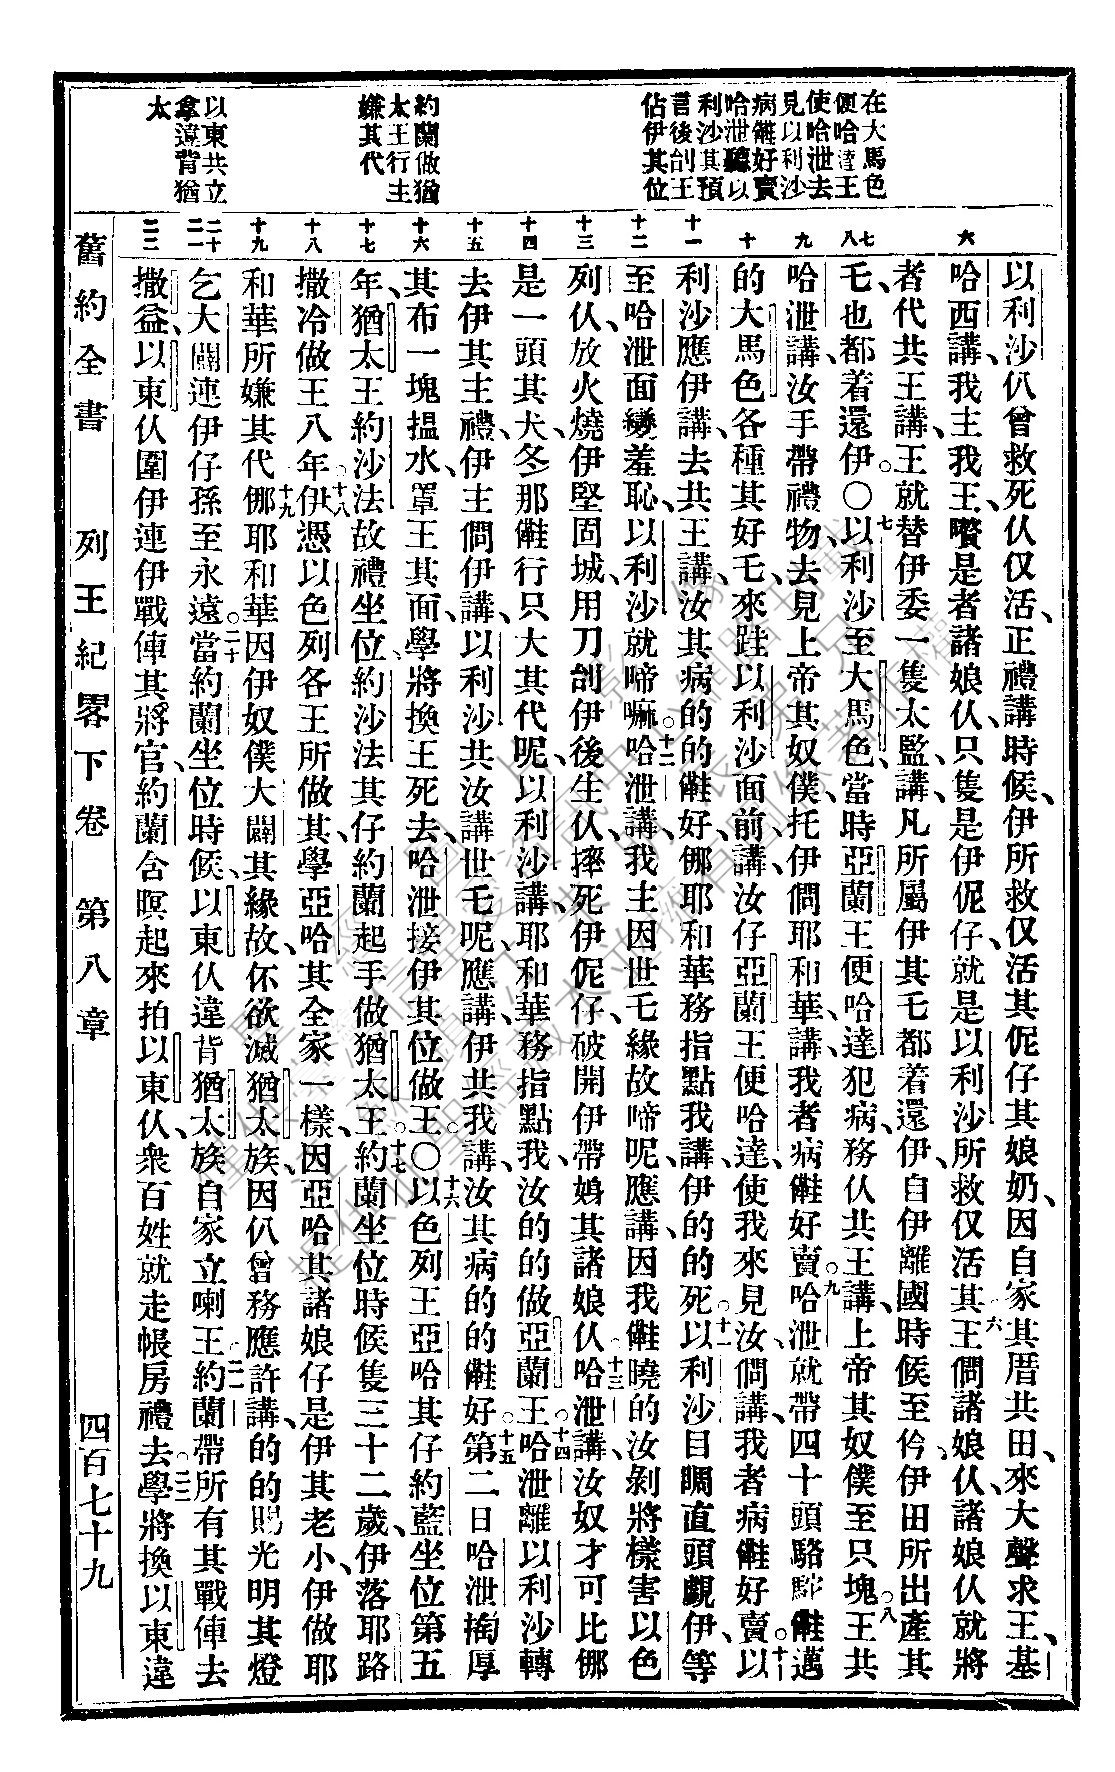 在大馬色
便哈達王
使哈泄去
見以利沙
病𣍐好賣
哈泄聽以
利沙其預
言後刣王
佔伊其位
約蘭做猶
太王行主
嫌其代
以東共立
拿違背猶
太
六
七
八
九
十
十一
十二
十三
十四
十五
十六
十七
十八
十九
二十
二一
二二
以利沙仈曾救死仈仅活、正禮講時候、伊所救仅活其伲仔其娘奶、因自家其厝共田、來大聲求王、基
哈西講、我主我王、嚽是者諸娘仈、只隻是伊伲仔、就是以利沙所救仅活其。六王僩諸娘仈、諸娘仈就將
者代共王講、王就替伊委一隻太監、講、凡所屬伊其乇都着還伊、自伊離國時候至仱、伊田所出產其
乇也都着還伊。○七以利沙至大馬色、當時亞蘭王便哈達犯病、務仈共王講、上帝其奴僕至只塊。八王共
哈泄講、汝手帶禮物、去見上帝其奴僕、托伊僩耶和華、講、我者病𣍐好賣。九哈泄就帶四十頭駱駝𣍐邁
的大馬色各種其好乇、來跬以利沙面前、講、汝仔亞蘭王便哈達、使我來見汝、僩講、我者病𣍐好賣。十以
利沙應伊講、去共王講、汝其病的的𣍐好、㑚耶和華務指點我講、伊的的死。十一以利沙目睭直頭覷伊、等
至哈泄面變羞恥、以利沙就啼嘛。十二哈泄講、我主因世乇緣故啼呢、應講、因我𣍐曉的汝剝將樣害以色
列仈、放火燒伊堅固城、用刀刣伊後生仈、摔死伊伲仔、破開伊帶㛂其諸娘仈。十三哈泄講、汝奴才可比㑚
是一頭其犬、冬那𣍐行只大其代呢、以利沙講、耶和華務指點我、汝的的做亞蘭王。十四哈泄離以利沙轉
去伊其主禮、伊主僩伊講、以利沙共汝講世乇呢、應講、伊共我講、汝其病的的𣍐好。十五第二日哈泄掏厚
其布一塊揾水、罩王其面、學將換王死去、哈泄接伊其位做王。○十六以色列王亞哈其仔約藍坐位第五
年、猶太王約沙法故禮坐位、約沙法其仔約蘭起手做猶太王。十七約蘭坐位時候隻三十二歲、伊落耶路
撒冷做王八年。十八伊憑以色列各王所做其、學亞哈其全家一樣、因亞哈其諸娘仔是伊其老小、伊做耶
和華所嫌其代。十九㑚耶和華因伊奴僕大闢其緣故、伓欲滅猶太族、因仈曾務應許講、的的賜光明其燈
乞大闢連伊仔孫至永遠。二十當約蘭坐位時候、以東仈違背猶太族、自家立喇王。二一約蘭帶所有其戰俥去
撒益、以東仈圍伊連伊戰俥其將官、約蘭含暝起來拍以東仈、衆百姓就走帳房禮去。二二學將換以東違
舊約全書 列王紀畧下卷 第八章 四百七十九